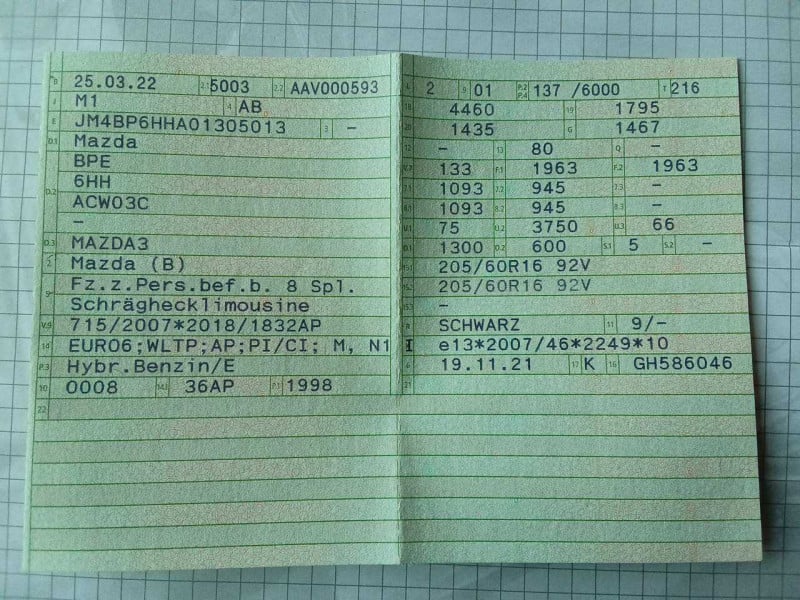 B 25.03.22 2.1 5003 2.2 AAV000593
J M1 4 AB
E JM4BP6HHA01305013 3 -
D.1 Mazda
D.2 BPE
6HH
ACW03C
-
D.3 MAZDA3
2 Mazda (B)
5 Fz.z.Pers.bef.b. 8 Spl.
Schräghecklimousine
V.9 715/2007*2018/1832AP
14 EURO6;WLTP;AP;PI/CI; M, N1 I
P.3 Hybr.Benzin/E
10 0008 14.1 36AP P.1 1998
22
L 2 9 01 P.2 P.4 137 /6000 T 216
18 4460 19 1795
20 1435 G 1467
12 - 13 80 Q -
V.7 133 F.1 1963 F.2 1963
7.1 1093 7.2 945 7.3 -
8.1 1093 8.2 945 8.3 -
U.1 75 U.2 3750 U.3 66
O.1 1300 O.2 600 S.1 5 S.2 -
15.1 205/60R16 92V
15.2 205/60R16 92V
15.3 -
R SCHWARZ 11 9/-
K e13*2007/46*2249*10
6 19.11.21 17 K 16 GH586046
21